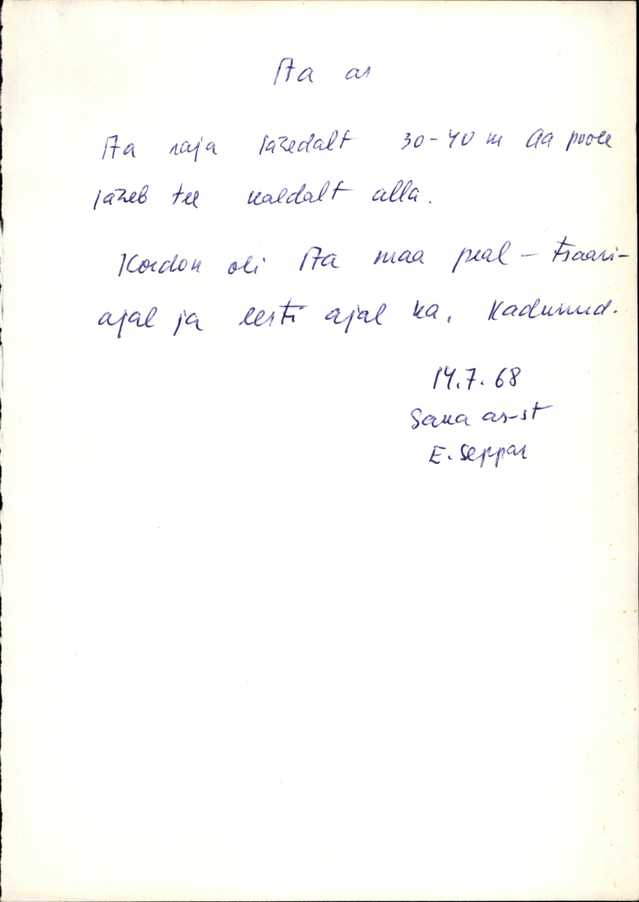 Aa as
Aa raja lähedalt 30-40 m Aa poole
läheb tee kaldalt alla.
Kordon oli Aa maa peal – tsaari-
ajal ja eesti ajal ka, kadunud.
14.7.68
Saka as-st
E. Seppar